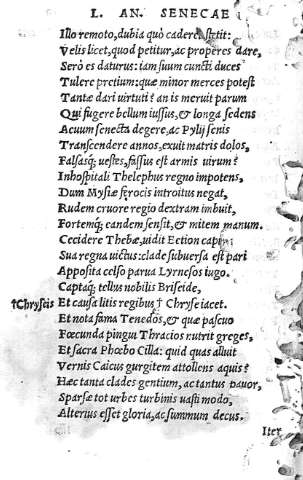 L. AN. SENECAE
Illo remoto, dubia quò caderet, stetit:
Velis licet, quod petitur, ac properes dare,
Serò es daturus: iam suum cuncti duces
Tulere pretium: quæ minor merces potest
Tantæ dari uirtuti? an is meruit parum
Qui fugere bellum iussus, & longa sedens
Aeuum senecta degere, ac Pylij senis
Transcendere annos, exuit matris dolos,
Falsasq; uestes, fassus est armis uirum?
Inhospitali Thelephus regno impotens,
Dum Mysiæ ferocis introitus negat,
Rudem cruore regio dextram imbuit,
Fortemq; eandem sensit, & mitem manum.
Cecidere Thebæ, uidit Eetion capi
Sua regna uictus: clade subuersa est pari
Apposita celso parua Lyrnesos iugo.
Captaq; tellus nobilis Briseide,
†Chryseis Et causa litis regibus † Chryse iacet.
Et nota fama Tenedos, & quæ pascuo
Fœcunda pingui Thracios nutrit greges,
Et sacra Phœbo Cilla: quid quas alluit
Vernis Caicus gurgitem attollens aquis?
Hæc tanta clades gentium, ac tantus pauor,
Sparsæ tot urbes turbinis uasti modo,
Alterius esset gloria, ac summum decus.
Iter